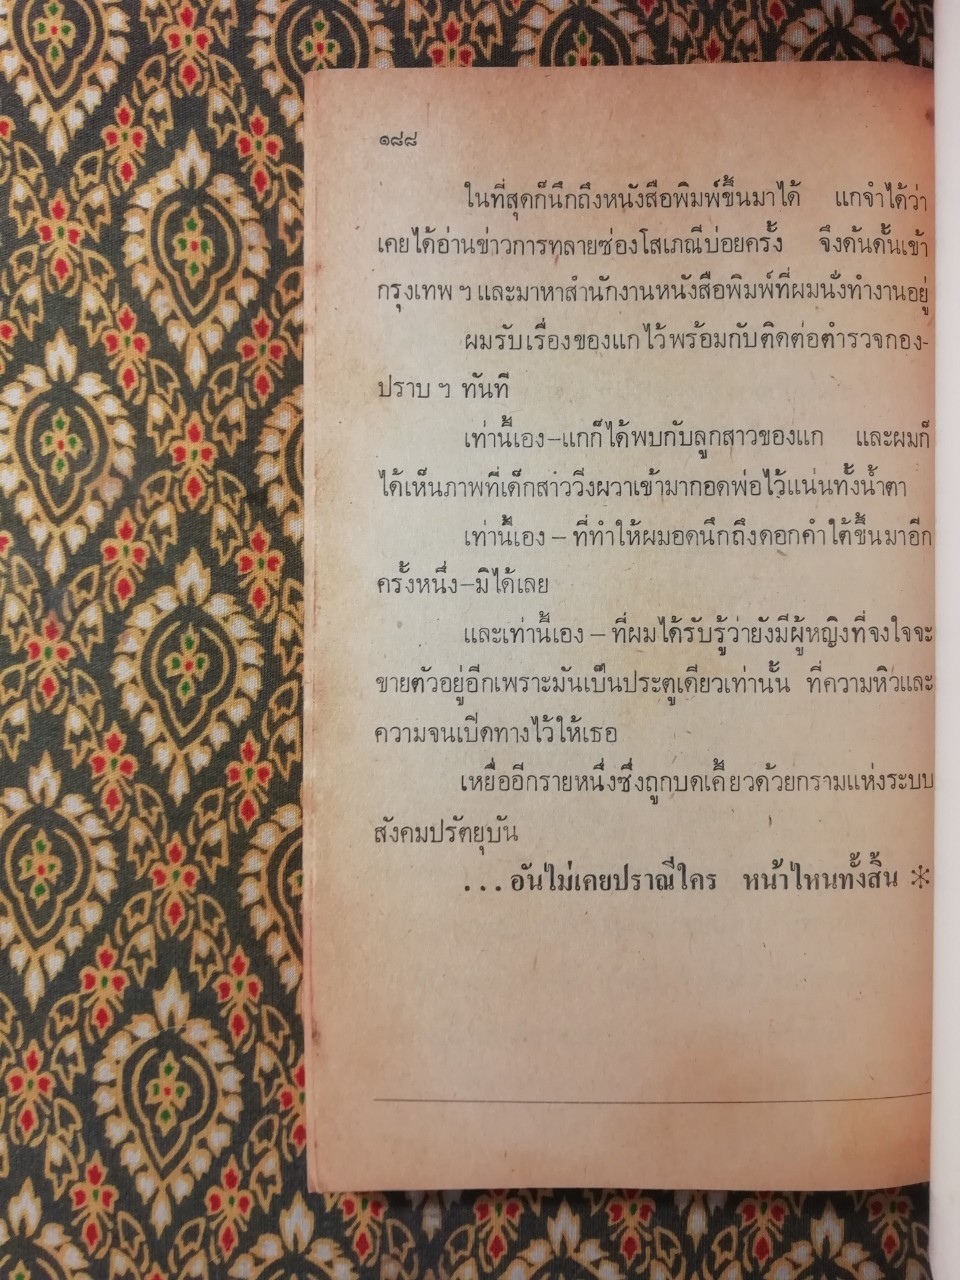 ๑๘๘
ในที่สุดก็นึกถึงหนังสือพิมพ์ขึ้นมาได้ แกจำได้ว่า
เคยได้อ่านข่าวการทลายซ่องโสเภณีบ่อยครั้ง จึงดั้นด้นเข้า
กรุงเทพ ฯ และมาหาสำนักงานหนังสือพิมพ์ที่ผมนั่งทำงานอยู่
ผมรับเรื่องของแกไว้พร้อมกับติดต่อตำรวจกอง-
ปราบ ฯ ทันที
เท่านี้เอง–แกก็ได้พบกับลูกสาวของแก และผมก็
ได้เห็นภาพที่เด็กสาววิ่งผวาเข้ามากอดพ่อไว้แน่นทั้งน้ำตา
เท่านี้เอง – ที่ทำให้ผมอดนึกถึงดอกคำใต้ขึ้นมาอีก
ครั้งหนึ่ง–มิได้เลย
และเท่านี้เอง – ที่ผมได้รับรู้ว่ายังมีผู้หญิงที่จงใจจะ
ขายตัวอยู่อีกเพราะมันเป็นประตูเดียวเท่านั้น ที่ความหิวและ
ความจนเปิดทางไว้ให้เธอ
เหยื่ออีกรายหนึ่งซึ่งถูกบดเคี้ยวด้วยกรามแห่งระบบ
สังคมปรัตยุบัน
...อันไม่เคยปราณีใคร หน้าไหนทั้งสิ้น *